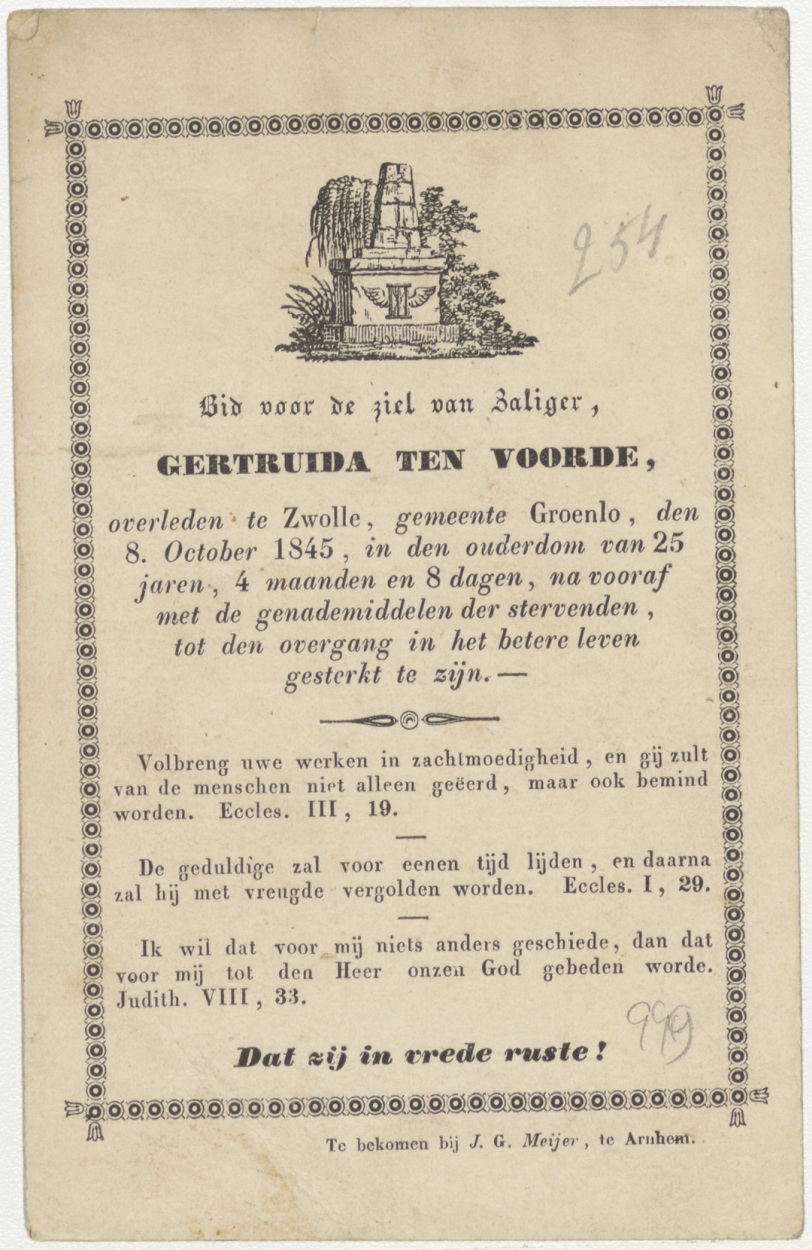 254
Bid voor de ziel van Zaliger,
GERTRUIDA TEN VOORDE,
overleden te Zwolle, gemeente Groenlo, den
8. October 1845, in den ouderdom van 25
jaren, 4 maanden en 8 dagen, na vooraf
met de genademiddelen der stervenden,
tot den overgang in het betere leven
gesterkt te zijn.—
Volbreng uwe werken in zachtmoedigheid, en gij zult
van de menschen niet alleen geëerd, maar ook bemind
worden. Eccles. III, 19.
De geduldige zal voor eenen tijd lijden, en daarna
zal hij met vreugde vergolden worden. Eccles. I, 29.
Ik wil dat voor mij niets anders geschiede, dan dat
voor mij tot den Heer onzen God gebeden worde.
Judith. VIII, 33.
999
Dat zij in vrede ruste!
Te bekomen bij J. G. Meijer, te Arnhem.